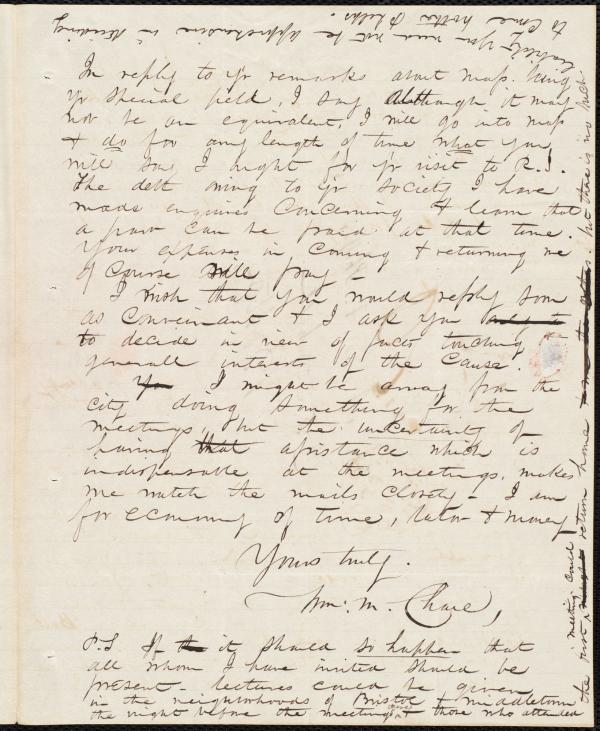 In reply to yr remarks about Mass. being
yr special field, I say although it may
not be an equivalent, I will go into Mass
& do for any length of time what you
will say I ought for yr visit to R.I.
The debt owing to yr Society I have
made enquiries concerning & learn that
a part can be paid at that time.
Your expenses in coming & returning we
of course will pay –
I wish that you would reply soon
as convenient & I ask you only to
to decide in view of facts touching
generall interests of the cause.
You I might be away from the
city doing something for the
meetings, but the uncertainty of
having that assistance which is
indispensable at the meetings, makes
me watch the mails closely – I am
for economy of time, labor & money
Yours truly.
Wm. M. Chace,
P.S. If the it should so happen that
all whom I have invited should be
present – lectures could be given
in the neighborhoods of Bristol & Middletown
the night before the meetings & those who attended
the first meeting could return home in the other. but there is no such
probability you need not be apprehensive in deciding
to come brother Phelps.